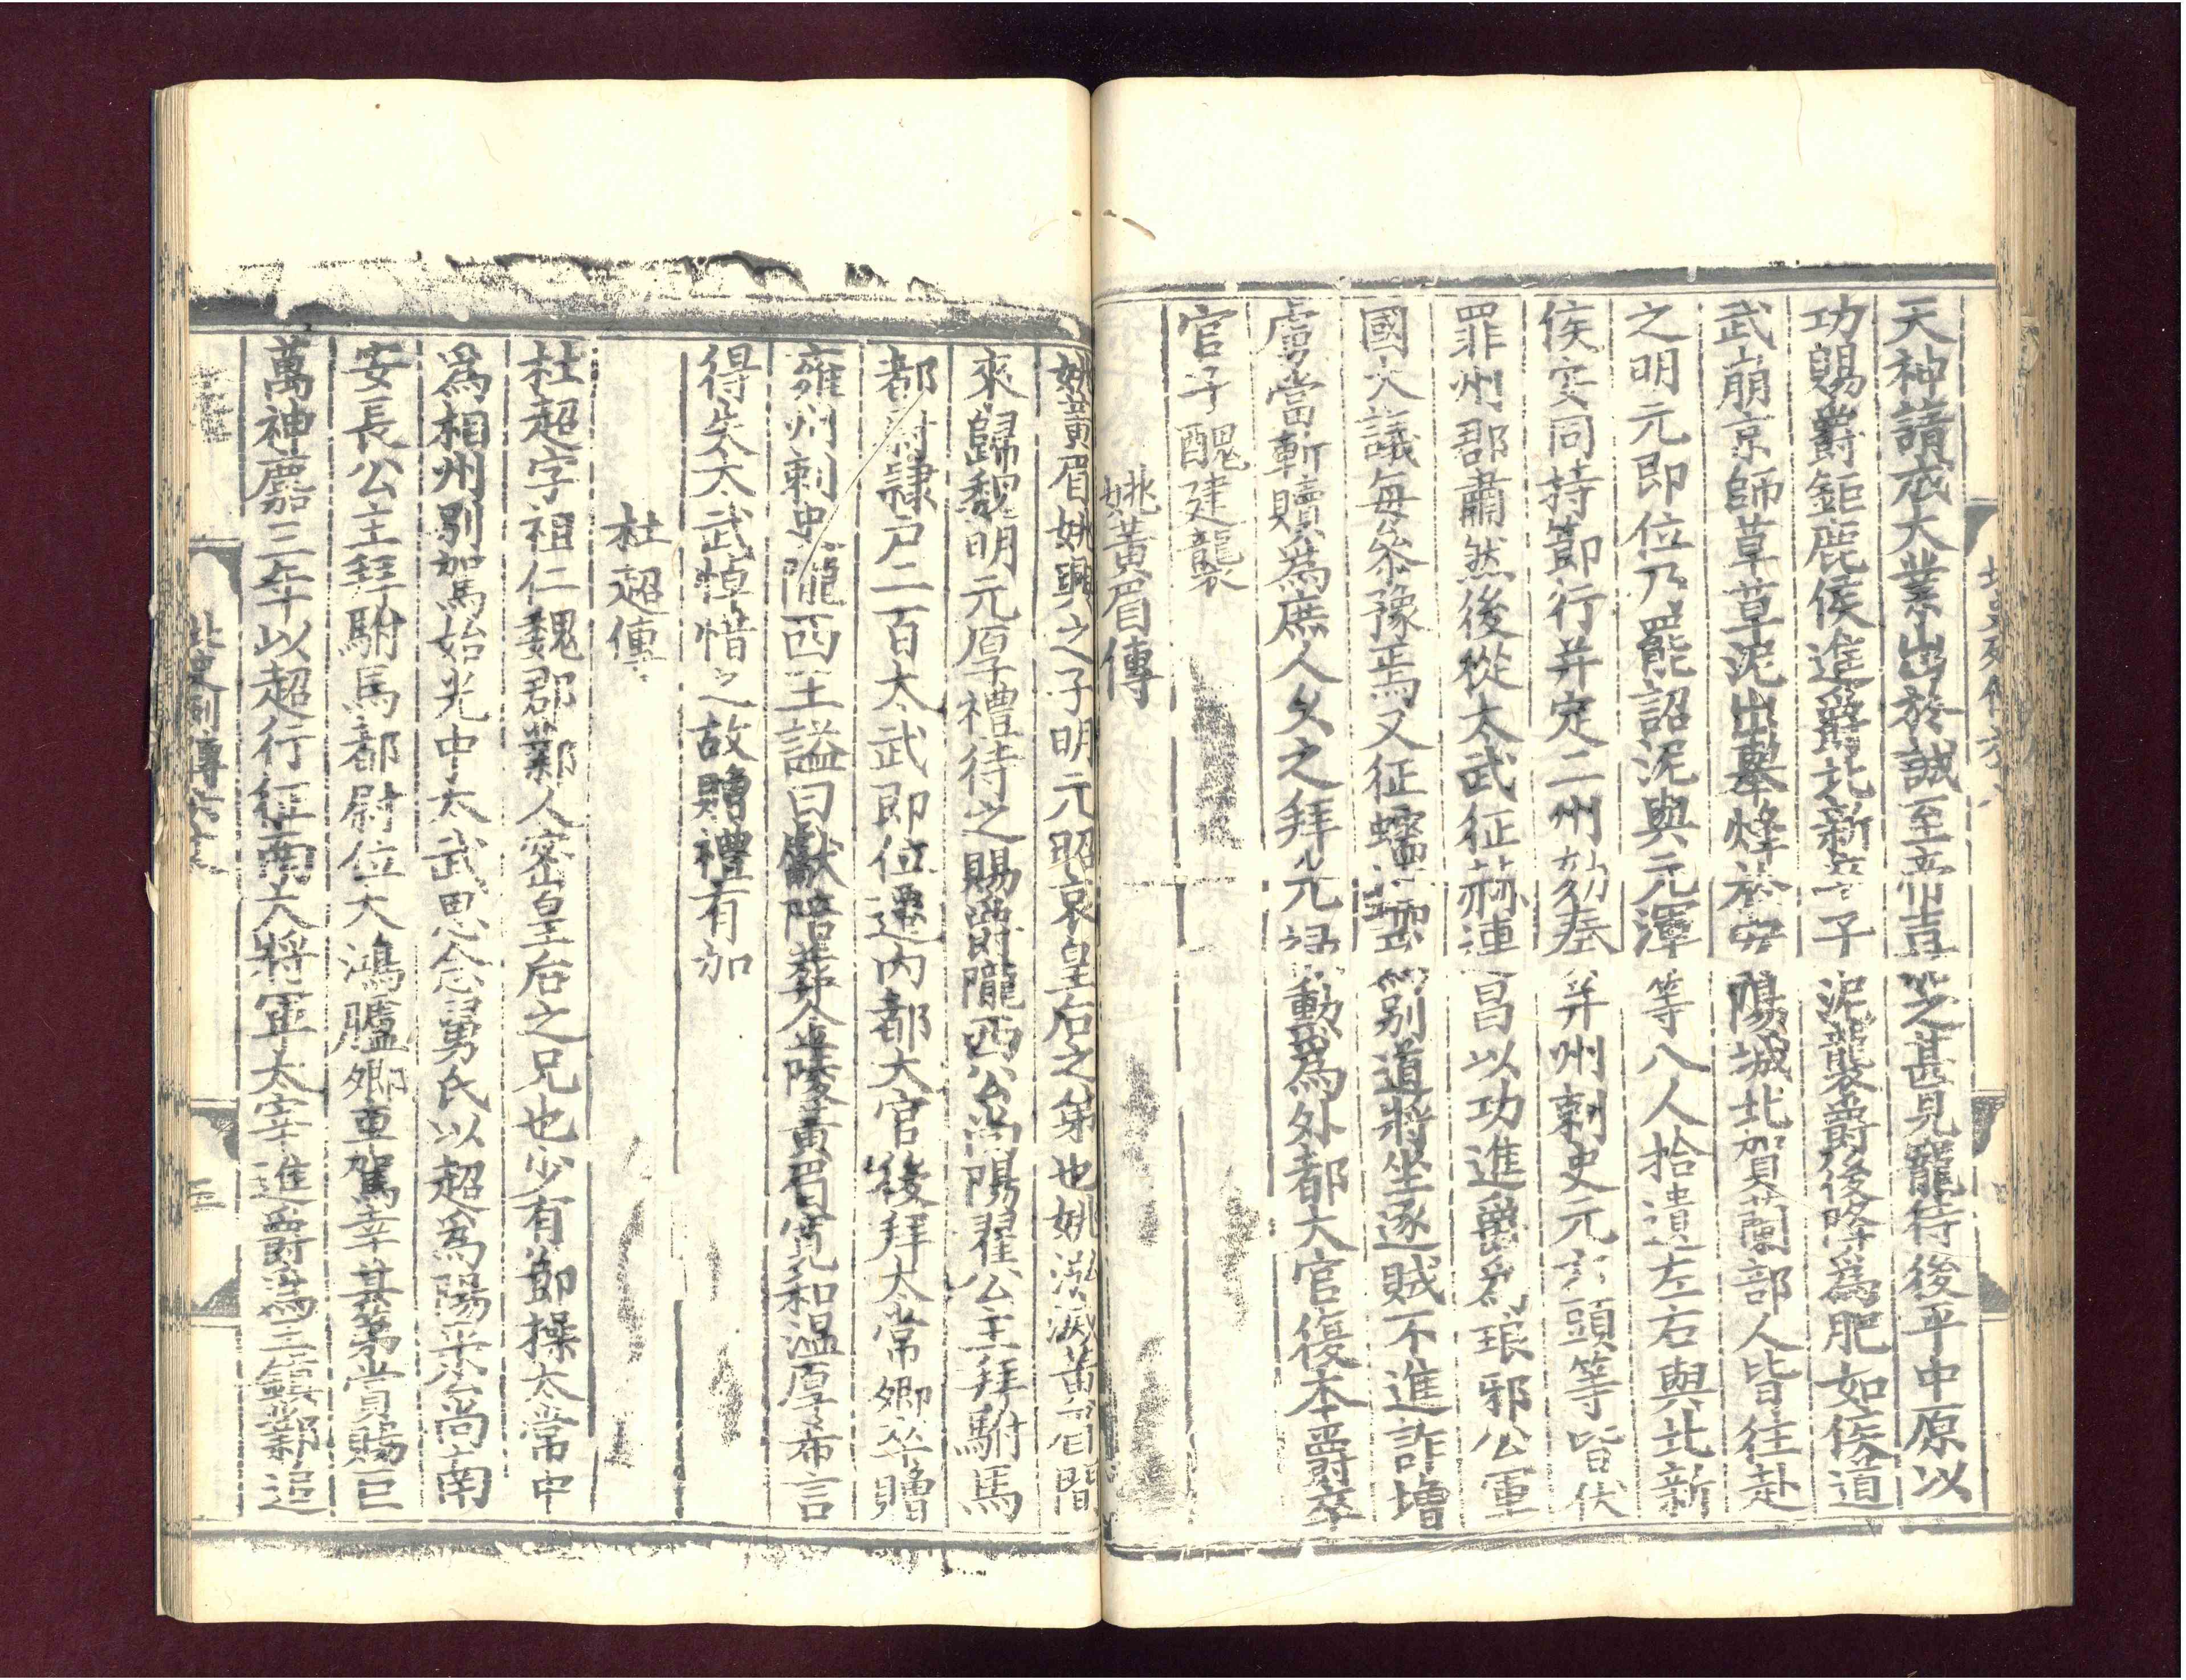 北史列傳六八
天神請成大業出於誠至帝喜之甚見寵待後平中原以
功賜爵鉅鹿侯進爵北新 子泥襲爵後降爲肥如侯道
武崩京師草草泥出舉烽於安陽城北賀蘭部人皆往赴
之明元即位乃罷詔泥與元渾等八人拾遺左右與北新
侯安同持節行并定二州劾奏并州刺史元 頭等皆伏
罪州郡肅然後從太武征赫連昌以功進爵爲琅邪公軍
國大議每參豫焉又征蠕蠕 別道將坐逐賊不進詐增
虜當斬贖爲庶人久之拜光祿勳爲外都大官復本爵卒
官子醜建襲
姚黃眉傳
姚黃眉姚興之子明元昭哀皇后之弟也姚泓滅黃眉間
來歸魏明元厚禮待之賜爵隴西公尚陽翟公主拜駙馬
都尉隸戶二百太武即位遷內都大官後拜太常卿卒贈
雍州刺史隴西王諡曰獻陪葬金陵黃眉寬和溫厚希言
得失太武悼惜之故贈禮有加
杜超傳
杜超字祖仁魏郡鄴人密皇后之兄也少有節操太常中
爲相州別駕始光中太武思念舅氏以超爲陽平公尚南
安長公主拜駙馬都尉位大鴻臚卿車駕幸其第賞賜巨
萬神䴥三年以超行征南大將軍太宰進爵爲王鎮鄴追
北史列傳六十八
三